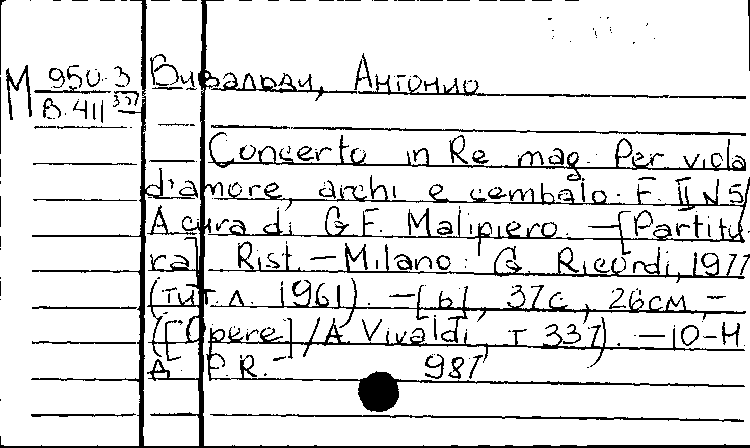 М 950-3 Вивальди, Антонио
В-411 337
Concerto in Re mag. Per viola
d'amore, archi e cembalo. F. II N 5/
A cura di G.F. Malipiero. – [Partitu-
ra]. Rist. – Milano: G. Ricordi, 1977
(тит. л. 1961). – [6], 37с., 26см, –
([Opere]/A. Vivaldi, т 337). – 10-Н
Д. P.R. – 987